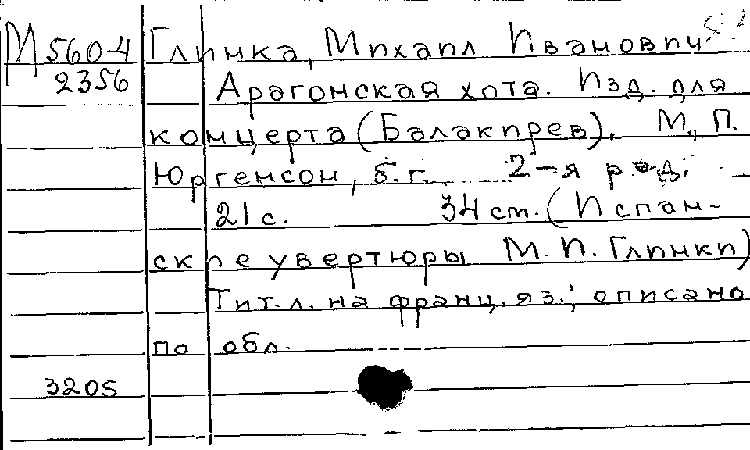 М 560-4 Глинка, Михаил Иванович
2356 Арагонская хота. Изд. для
концерта (Балакирев). М., П.
Юргенсон, б.г. 2-я ред.
21 с. 34 cm. (Испан-
ские увертюры М.И. Глинки)
Тит. л. на франц. яз.; описано
по обл.
3205